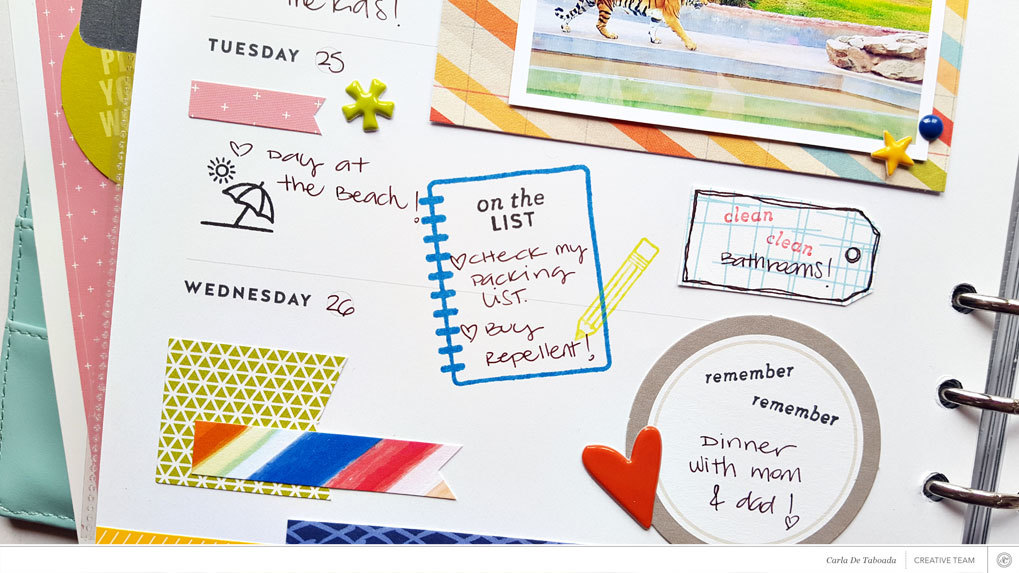 the Kids!
TUESDAY 25
♡ Day at
the Beach!
on the
LIST
♡ CHECK my
Packing
LIST.
♡ Buy
Repellent!
clean
clean
Bathrooms!
WEDNESDAY 26
remember
remember
Dinner
with mom
& dad! ♡
Carla De Taboada
CREATIVE TEAM